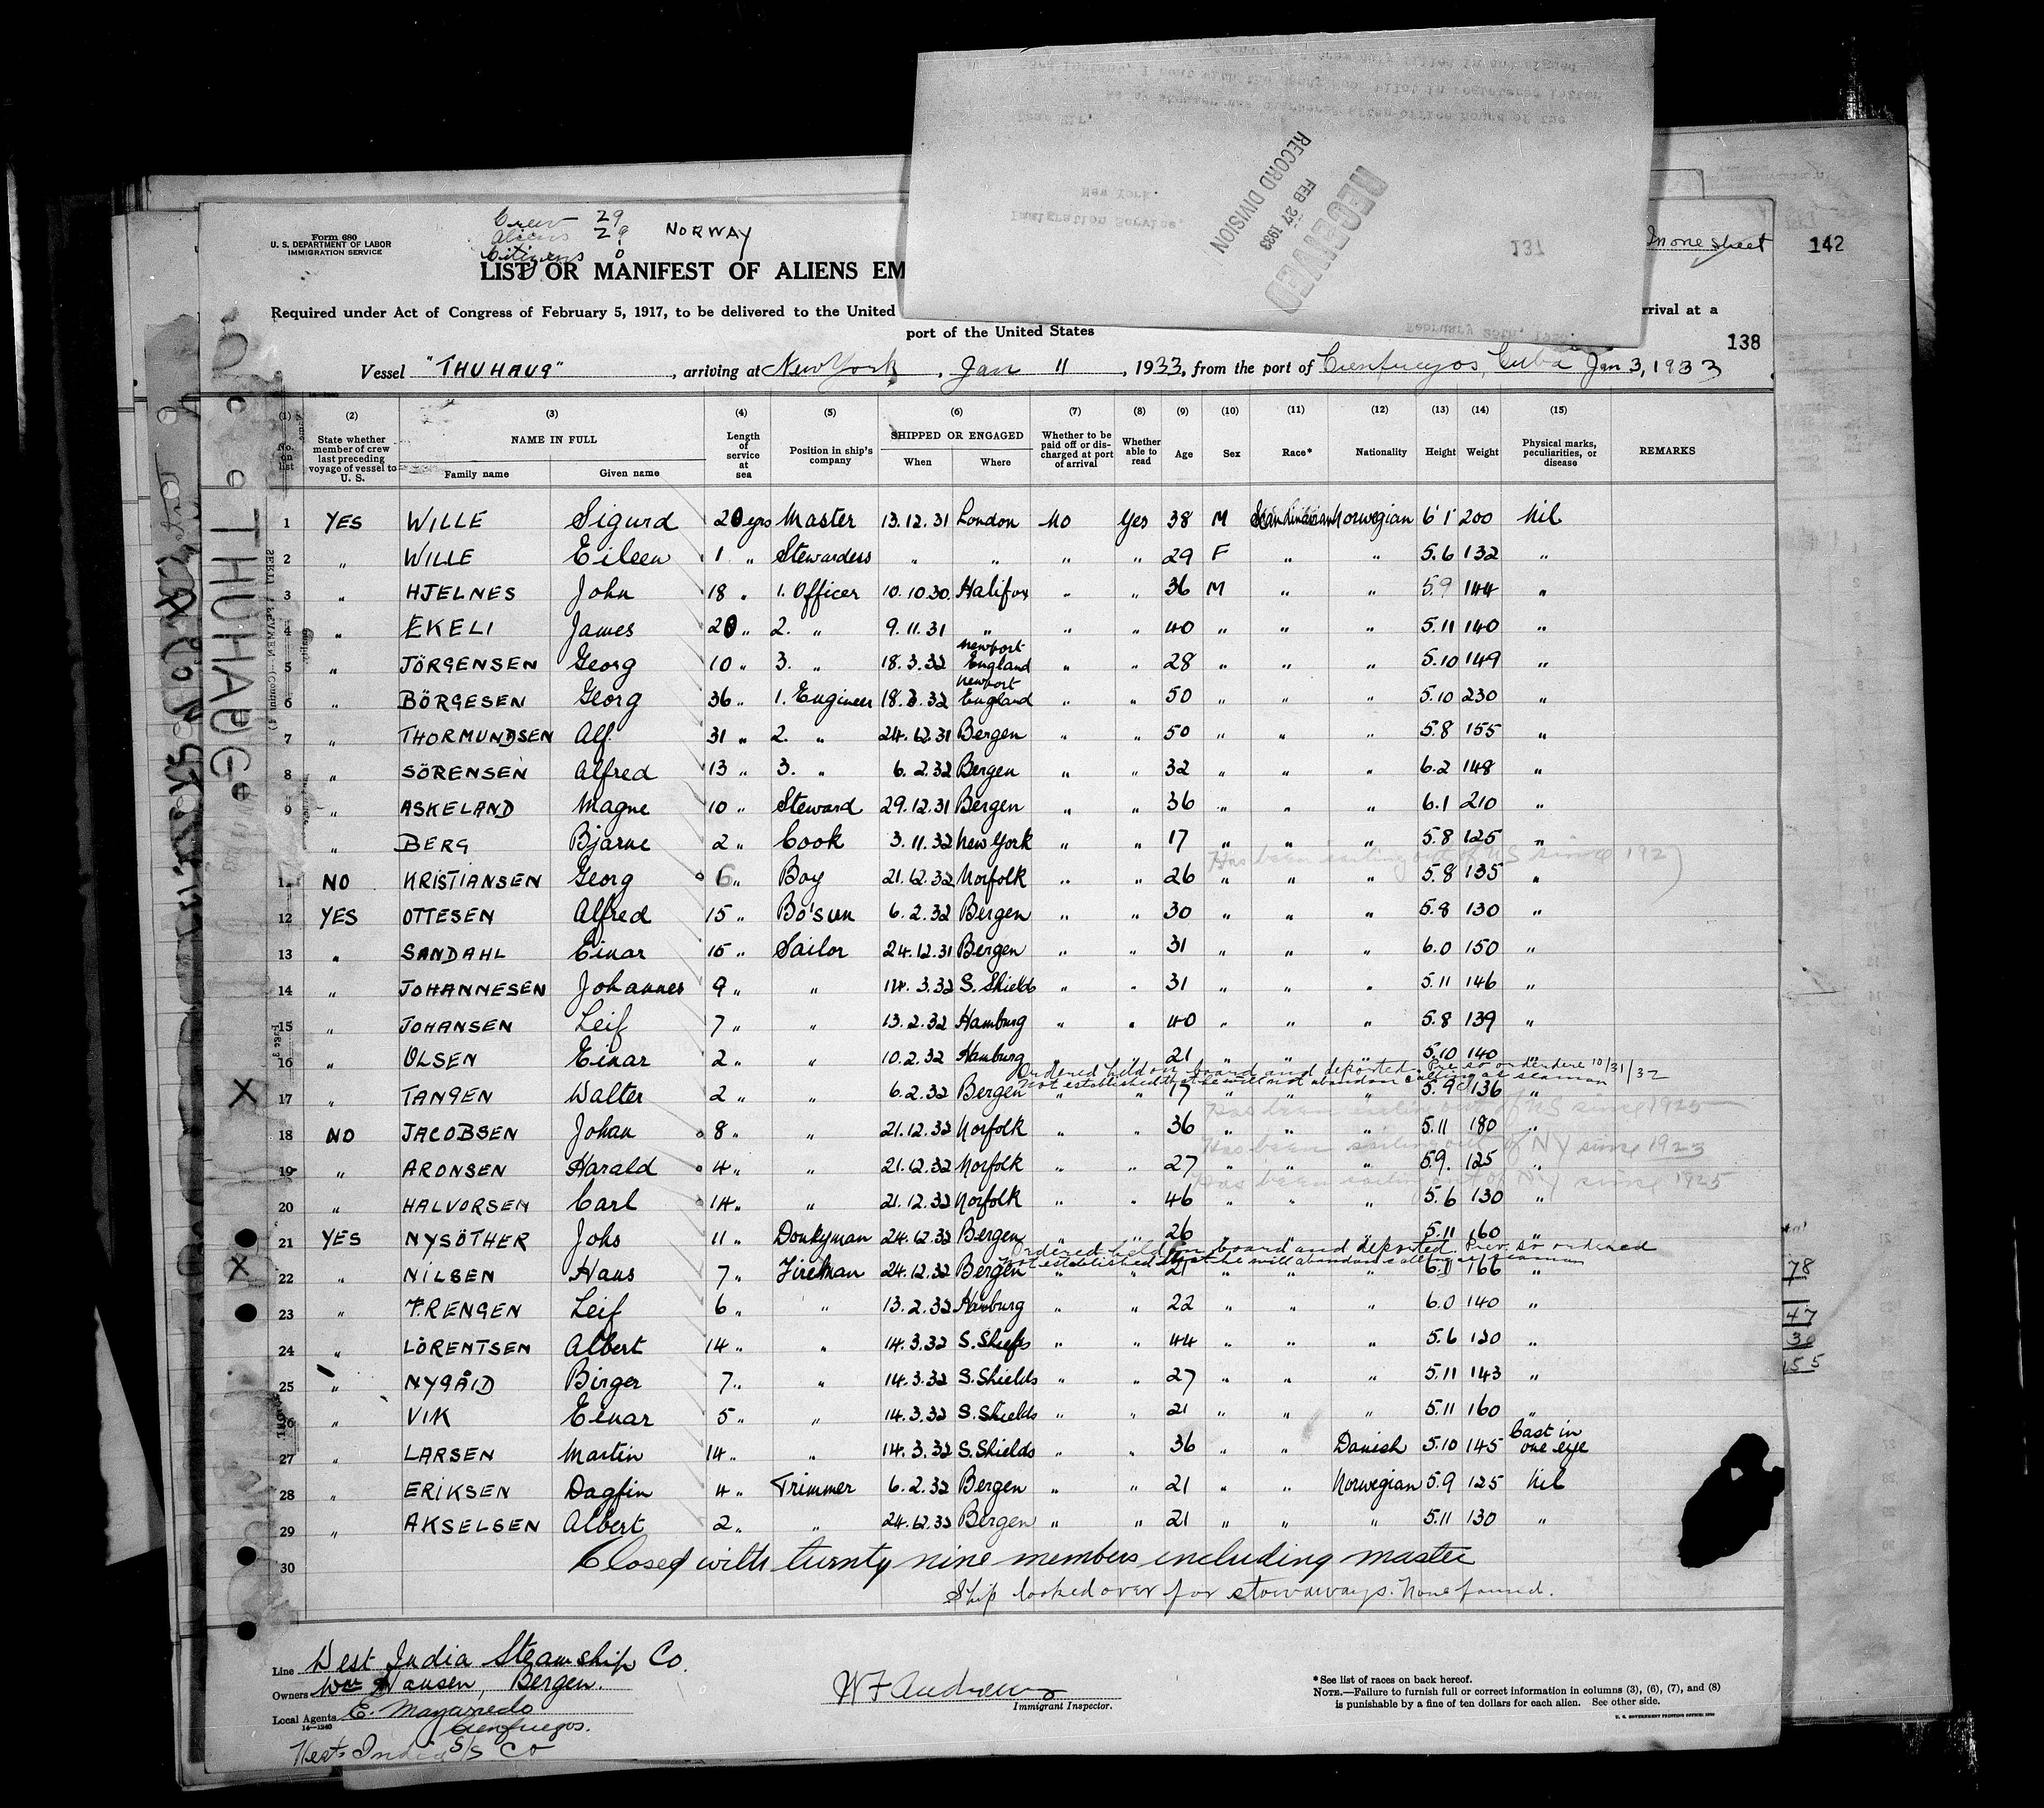 Form 680
U. S. DEPARTMENT OF LABOR
IMMIGRATION SERVICE
Crew 29
Aliens 29
Citizens 0
NORWAY
In one sheet
142
LIST OR MANIFEST OF ALIENS EM
Required under Act of Congress of February 5, 1917, to be delivered to the United
rrival at a
port of the United States
138
RECEIVED
FEB 27 1933
RECORD DIVISION
Immigration Service,
New York.
137
Vessel "THUHAUG", arriving at New York, Jan 11, 1933, from the port of Cienfuegos, Cuba Jan 3, 1933
THUHAUG
(1) (2) (3) (4) (5) (6) (7) (8) (9) (10) (11) (12) (13) (14) (15)
No. on list
State whether member of crew last preceding voyage of vessel to U. S.
NAME IN FULL
Family name
Given name
Length of service at sea
Position in ship's company
SHIPPED OR ENGAGED
When
Where
Whether to be paid off or discharged at port of arrival
Whether able to read
Age
Sex
Race*
Nationality
Height
Weight
Physical marks, peculiarities, or disease
REMARKS
1 YES WILLE Sigurd 20 yrs Master 13.12.31 London No Yes 38 M Scandinavian Norwegian 6'1 200 Nil
2 " WILLE Eileen 1 " Stewardess " " " " 29 F " " 5.6 132 "
3 " HJELNES John 18 " 1. Officer 10.10.30 Halifax " " 36 M " " 5.9 144 "
4 " EKELI James 20 " 2. " 9.11.31 " " " 40 " " " 5.11 140 "
5 " JÖRGENSEN Georg 10 " 3. " 18.3.32 Newport England " " 28 " " " 5.10 149 "
6 " BÖRGESEN Georg 36 " 1. Engineer 18.3.32 Newport England " " 50 " " " 5.10 230 "
7 " THORMUNDSEN Alf. 31 " 2. " 24.12.31 Bergen " " 50 " " " 5.8 155 "
8 " SÖRENSEN Alfred 13 " 3. " 6.2.32 Bergen " " 32 " " " 6.2 148 "
9 " ASKELAND Magne 10 " Steward 29.12.31 Bergen " " 36 " " " 6.1 210 "
" BERG Bjarne 2 " Cook 3.11.32 New York " " 17 " " " 5.8 125 "
Has been sailing out of US since 192
NO KRISTIANSEN Georg 6 " Boy 21.12.32 Norfolk " " 26 " " " 5.8 135 "
12 YES OTTESEN Alfred 15 " Bo'sun 6.2.32 Bergen " " 30 " " " 5.8 130 "
13 " SANDAHL Einar 15 " Sailor 24.12.31 Bergen " " 31 " " " 6.0 150 "
14 " JOHANNESEN Johannes 9 " " 14.3.32 S. Shields " " 31 " " " 5.11 146 "
15 " JOHANSEN Leif 7 " " 13.2.32 Hamburg " " 40 " " " 5.8 139 "
16 " OLSEN Einar 2 " " 10.2.32 Hamburg " " 21 " " " 5.10 140 "
Ordered held on board and deported. Prev. so ordered 10/31/32
Not established that he will not abandon calling as seaman
X 17 " TANGEN Walter 2 " " 6.2.32 Bergen " " 17 " " " 5.9 136 "
Has been sailing out of US since 1925
18 NO JACOBSEN Johan 8 " " 21.12.32 Norfolk " " 36 " " " 5.11 180 "
Has been sailing out of NY since 1923
19 " ARONSEN Harald 4 " " 21.12.32 Norfolk " " 27 " " " 5.9. 125 "
Has been sailing out of NY since 1925
20 " HALVORSEN Carl 14 " " 21.12.32 Norfolk " " 46 " " " 5.6 130 "
21 YES NYSÖTHER Johs 11 " Donkyman 24.12.32 Bergen " " 26 " " " 5.11 160 "
Ordered held on board and deported. Prev. so ordered
Not established that he will abandon calling as seaman
X 22 " NILSEN Hans 7 " Fireman 24.12.32 Bergen " " 21 " " " 6.1 166 "
23 " F. RENGEN Leif 6 " " 13.2.32 Hamburg " " 22 " " " 6.0 140 "
24 " LÖRENTSEN Albert 14 " " 14.3.32 S. Shields " " 44 " " " 5.6 130 "
25 " NYGÅID Birger 7 " " 14.3.32 S. Shields " " 27 " " " 5.11 143 "
26 " VIK Einar 5 " " 14.3.32 S. Shields " " 21 " " " 5.11 160 "
27 " LARSEN Martin 14 " " 14.3.32 S. Shields " " 36 " " Danish 5.10 145 Cast in one eye
28 " ERIKSEN Dagfin 4 " Trimmer 6.2.32 Bergen " " 21 " " Norwegian 5.9 125 Nil
29 " AKSELSEN Albert 2 " " 24.12.32 Bergen " " 21 " " " 5.11 130 "
30 Closed with twenty nine members including master
Ship looked over for stowaways. None found.
78
47
30
155
Line West India Steamship Co.
Owners Wm Hansen, Bergen.
Local Agents E. Mayanedo
Cienfuegos.
West India S/S Co
W F Andrews
Immigrant Inspector.
* See list of races on back hereof.
NOTE.—Failure to furnish full or correct information in columns (3), (6), (7), and (8)
is punishable by a fine of ten dollars for each alien. See other side.